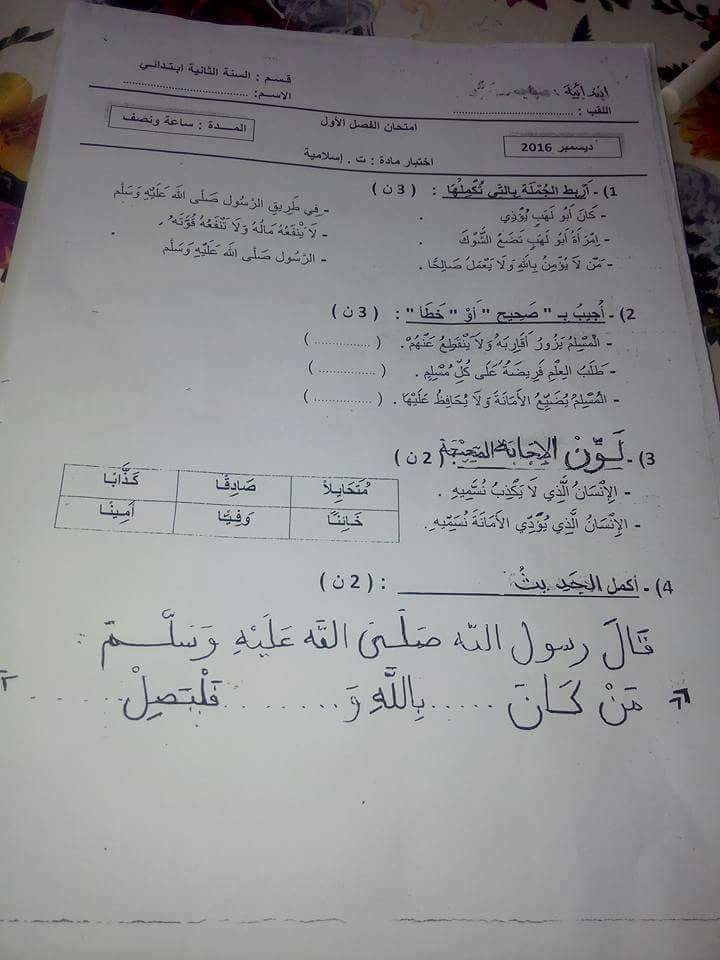 قسم : السنة الثانية ابتدائي
اللقب : ........................ الاسم: ........................
امتحان الفصل الأول
ديسمبر 2016
المدة : ساعة ونصف
اختبار مادة : ت . إسلامية
1) - أَرْبِطُ الجُمْلَةَ بِالتِّي تُكَمِلُهَا : ( 3 ن )
- كَانَ أَبُو لَهَبٍ يُؤْذِي . - فِي طَرِيقِ الرَّسُولِ صَلَّى اللهُ عَلَيْهِ وَسَلَّم
- اِمْرَأَةُ أَبُو لَهَبٍ تَضَعُ الشَّوْكَ . - لاَ يَنْفَعُهُ مَالُهُ وَلاَ تَنْفَعُهُ قُوَّتُهُ .
- مَنْ لاَ يُؤْمِنُ بِاللهِ وَلاَ يَعْمَلُ صَالِحًا . - الرَّسُول صَلَّى اللهُ عَلَيْهِ وَسَلَّم
2) - أُجِيبُ بـ " صَحِيح " أَوْ " خَطَأ " : ( 3 ن )
- الْمُسْلِمُ يَزُورُ أَقَارِبَهُ وَلاَ يَنْقَطِعُ عَنْهُمْ. ( ............... )
- طَلَبُ العِلْمِ فَرِيضَةٌ عَلَى كُلِّ مُسْلِمٍ . ( ............... )
- الْمُسْلِمُ يُضَيِّعُ الأَمَانَةَ وَلاَ يُحَافِظُ عَلَيْهَا . ( ............... )
3) - لَوِّنْ الإِجَابَةَ الصَّحِيحَةَ : ( 2 ن )
- الإِنْسَانُ الَّذِي لاَ يَكْذِبُ نُسَمِّيهِ .
- الإِنْسَانُ الَّذِي يُؤَدِّي الأَمَانَةَ نُسَمِّيهِ .
مُتَحَايِلاً صَادِقًا كَذَّابًا
خَائِنًا وَفِيًّا أَمِينًا
4) - أكمل الحَدِيثُ : ( 2 ن )
قَالَ رسول الله صَلَّى اللَّه عَلَيْهِ وَسَلَّمَ :
« مَنْ كَانَ ..... بِاللَّهِ وَ ....... فَلْيَصِلْ .......